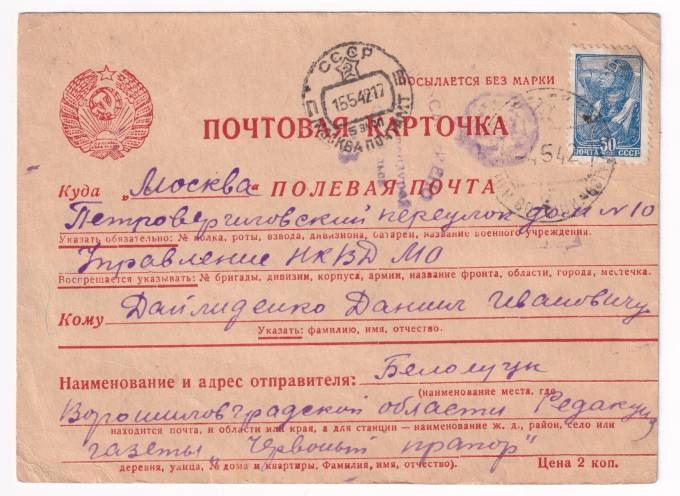 СССР
1554217
МОСКВА ПОЧТАМТ
ПОСЫЛАЕТСЯ БЕЗ МАРКИ
30
ПОЧТА СССР
ПОЧТОВАЯ КАРТОЧКА
Куда „Москва“ ПОЛЕВАЯ ПОЧТА
Петровергиловский переулок дом N 10
Указать обязательно: № полка, роты, взвода, дивизиона, батареи, название военного учреждения.
Управление НКВД МО
Воспрещается указывать: № бригады, дивизии, корпуса, армии, название фронта, области, города, местечка.
Кому Дайлиденко Даниил Ивановичу
Указать: фамилию, имя, отчество.
Наименование и адрес отправителя: Белолуцк
(наименование места, где
Ворошиловградской области Редакция
находится почта, и области или края, а для станции — наименование ж. д., район, село или
газеты „Червоный прапор“
деревня, улица, № дома и квартиры. Фамилия, имя, отчество).
Цена 2 коп.